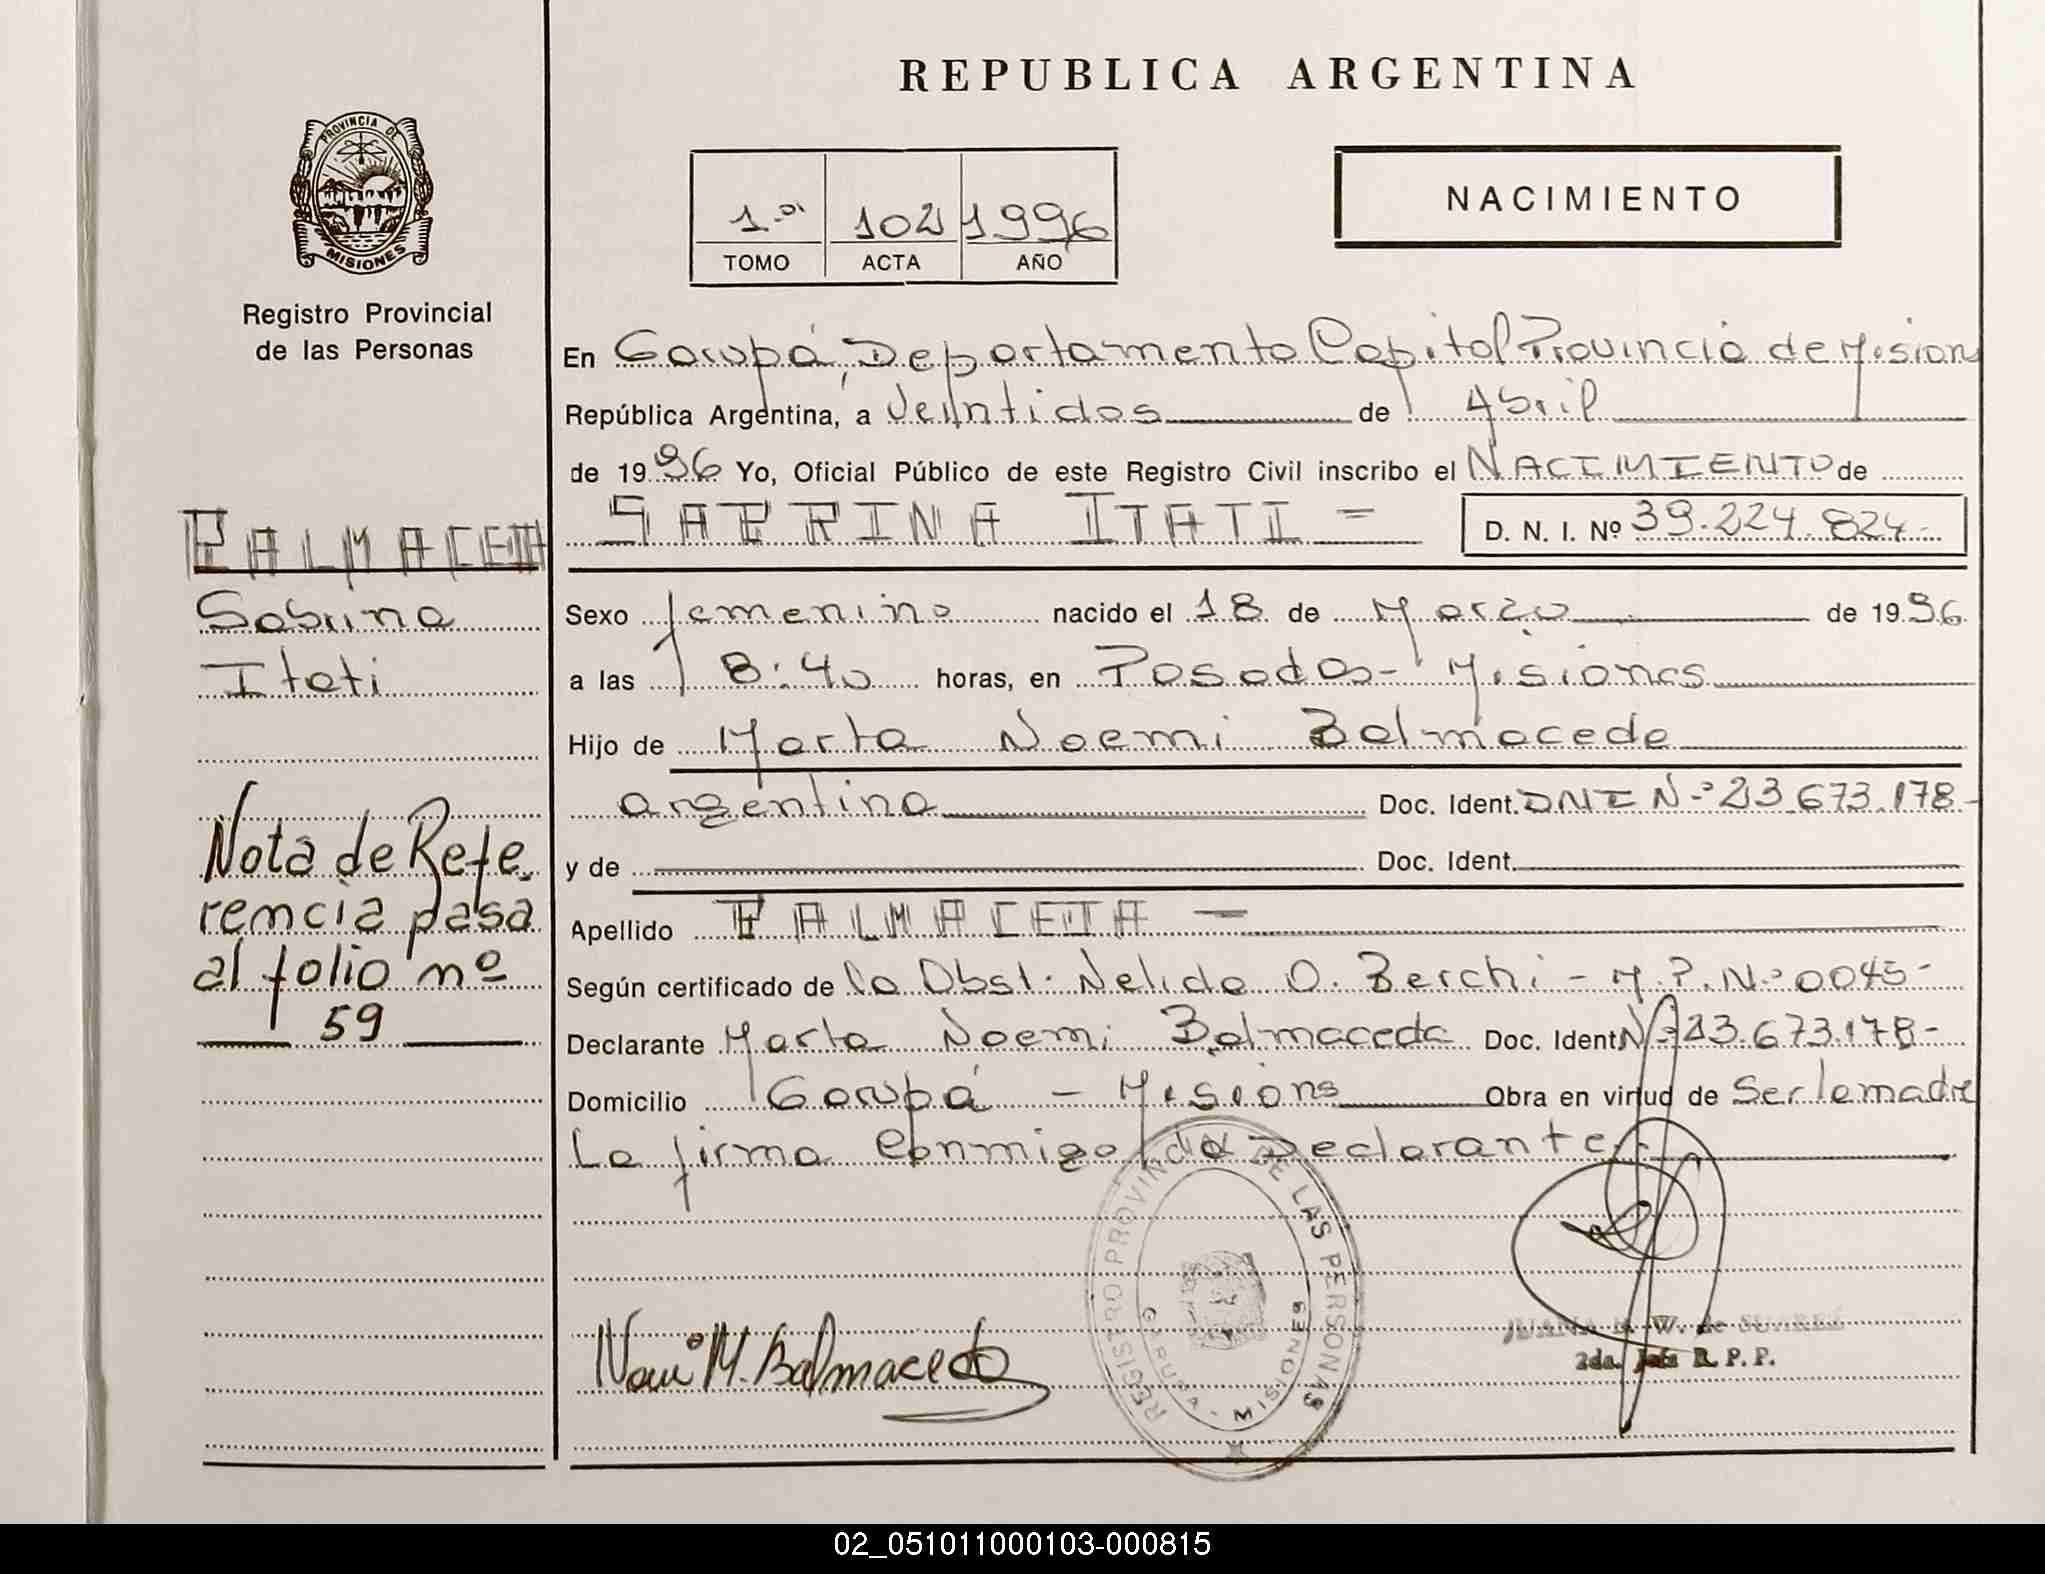 REPUBLICA ARGENTINA
PROVINCIA DE
MISIONES
Registro Provincial
de las Personas
NACIMIENTO
1.º 102 1996
TOMO ACTA AÑO
En Garupá, Departamento Capital Provincia de Misiones
República Argentina, a Veintidos de Abril
de 1996 Yo, Oficial Público de este Registro Civil inscribo el NACIMIENTO de
SABRINA ITATI =
D. N. I. Nº 39.224.824.-
BALMACEDA
Sabrina
Itati
Nota de Refe
rencia pasa
al folio nº
59
Sexo femenino nacido el 18 de Marzo de 1996
a las 8:40 horas, en Posadas - Misiones
Hijo de Marta Noemi Balmaceda
argentina Doc. Ident. DNI N.º 23.673.178-
y de Doc. Ident.
Apellido BALMACEDA -
Según certificado de la Obst. Nelida O. Berchi - M.P.N.º 0045-
Declarante Marta Noemi Balmaceda Doc. Ident. Nº 23.673.178-
Domicilio Garupá - Misions Obra en virtud de Ser la madre
La firma Conmigo la Declarante.
REGISTRO PROVINCIAL DE LAS PERSONAS
GARUPA - MISIONES
M. Balmaceda
JUANA W. de SUAREZ
2da. Jefa R. P. P.
02_051011000103-000815